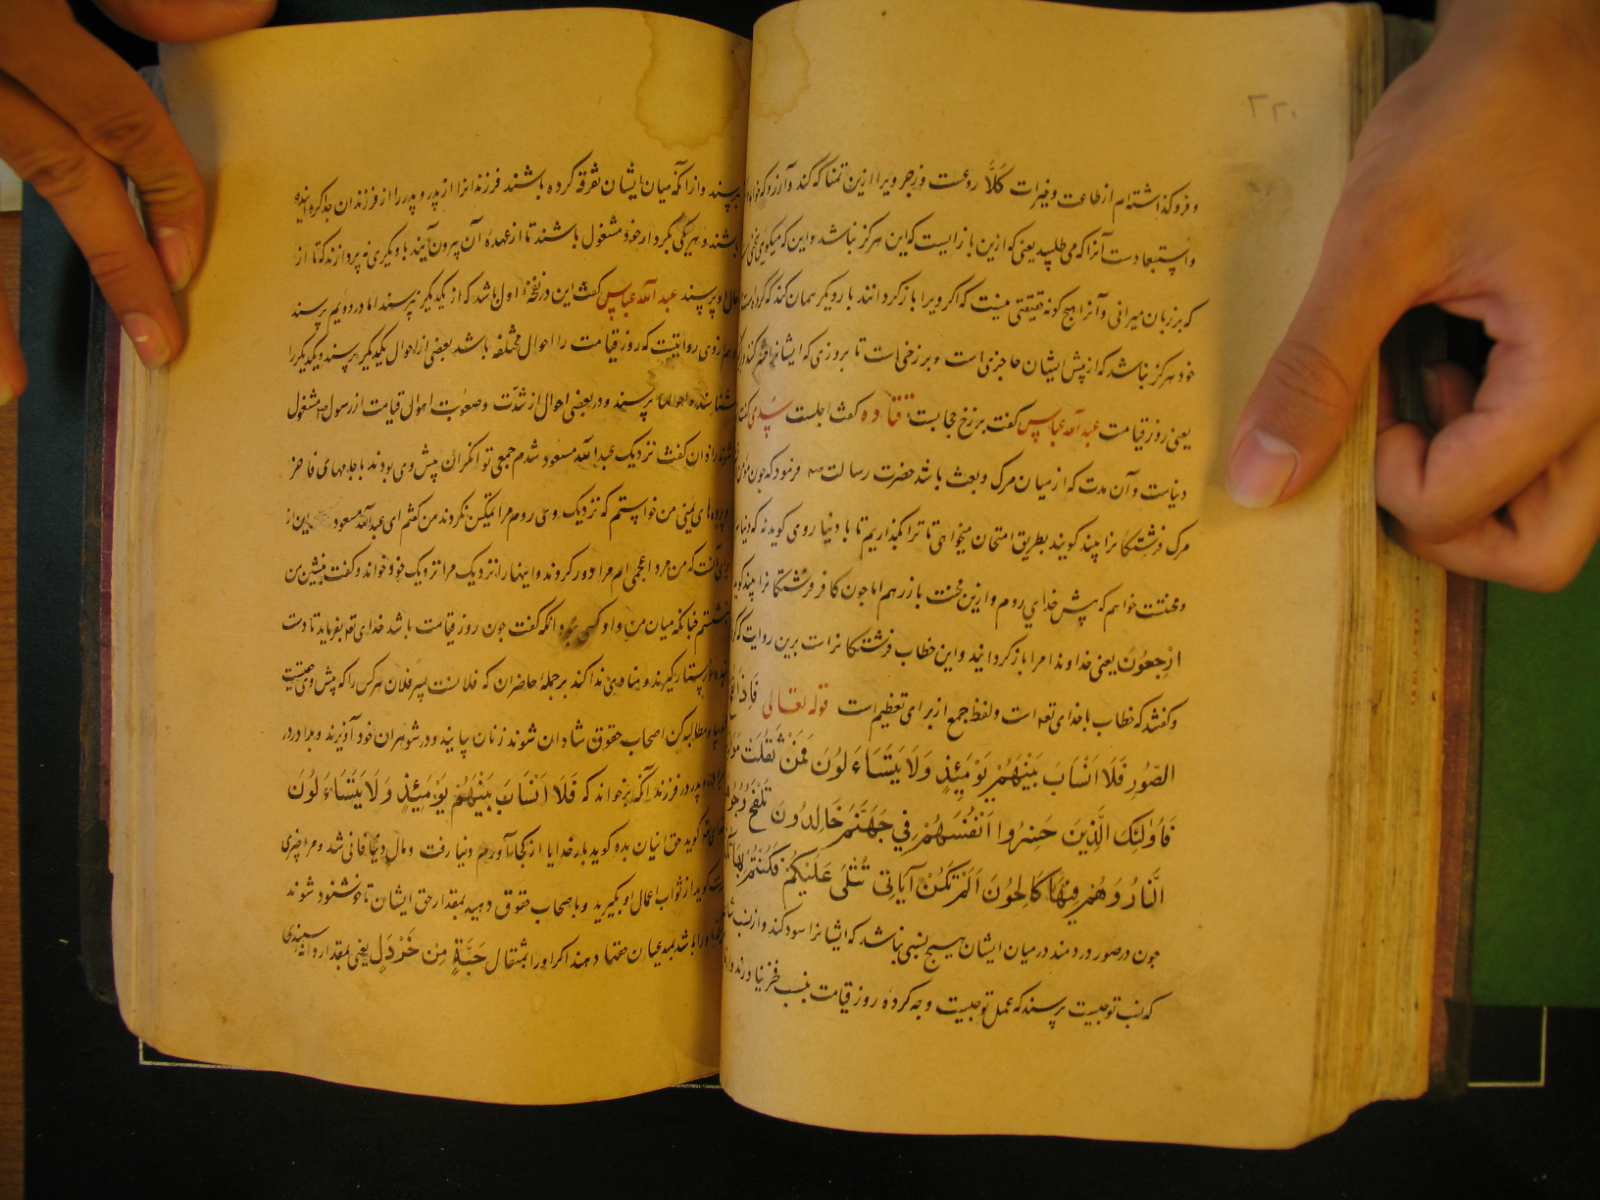 ۲۲۰
و فرو گذاشته‌ام از طاعت و خیرات کَلّا روعت و زجر ویرا ازین تمنا که کند و آرزو که خواهد
و استبعادست آنرا که می طلبید یعنی که ازین باز ایست که این هرگز نباشد و این که میکوی سخنی
که بر زبان میرانی و آنرا هیچ کونه حقیقتی نیست که اکر ویرا باز کردانند باز ویکر همان کند که کرده
خود هرگز نباشد که از پیش ایشان حاجزی است و برزخی است تا بروزی که ایشانرا
یعنی روز قیامت عبد الله عباس گفت برزخ حجابست قتاده گفت اجلست سدی گفت
دنیاست و آن مدت که از میان مرک و بعث باشد حضرت رسالت فرمود که چون مؤمن
مرک فرشتکانرا بیند کویند بطریق امتحان میخواهی تا ترا بگذاریم تا با دنیا روی کوید نه که دنیا
و محنتست خواهم که پیش خدای روم و ازین محنت باز رهم اما جون کافر فرشتکانرا بیند کوید
ارْجِعُونَ یعنی خداوندا مرا باز کردانید و این خطاب فرشتکانراست برین روایت که
و کفتند که خطاب با خدای تعه است و لفظ جمع از برای تعظیم است قوله تعالی فَاِذَا نُفِخَ
الصُّورِ فَلَا اَنْسَابَ بَيْنَهُمْ يَوْمَئِذٍ وَلَا يَتَسَاءَلُونَ فَمَنْ ثَقُلَتْ
فَاُولٰئِكَ الَّذِينَ خَسِرُوا اَنْفُسَهُمْ فِي جَهَنَّمَ خَالِدُونَ تَلْفَحُ وُجُوهَ
النَّارُ وَهُمْ فِيهَا كَالِحُونَ اَلَمْ تَكُنْ آيَاتِي تُتْلَى عَلَيْكُمْ فَكُنْتُمْ بِهَا
جون در صور دردمند در میان ایشان هیچ نسبی نباشد که ایشانرا سود کند و از نسب
که نسب تو جیست پرسند که عمل تو جیست وجه کرده روز قیامت بنسب فخر نیاورند
پرسند و از آنکه میان ایشان تفرقه کرده باشند فرزندانرا از پدر و پدر را از فرزندان جدا کرده
باشند و هر یکی بکردار خود مشغول باشند تا از عهدهٔ آن بیرون آیند با ویکری نه پردازند که تا از
حال او پرسند عبد الله عباس کفت این در نفخهٔ اول باشد که از یکدیگر نپرسند اما در دویم پرسند
و هم ازوی روایتست که روز قیامت را احوال مختلفه باشد بعضی از احوال یکدیگر پرسند و یکدیگر را
شناسند و پرسند و در بعضی احوال از شدت و صعوبت اهوال قیامت از رسول مشغول
شوند زاذان کفت نزدیک عبد الله مسعود شدم جمعی توانکران پیش وی بودند با جامهای فاخر
یمنی من خواستم که نزدیک وی روم مرا تمکین نکردند من کفتم ای عبد الله مسعود
که من مرد اعجمی ام مرا دور کردند و اینها را نزدیک مرا نزدیک خود خواند و کفت بنشین من
بنشستم جنانکه میان من و او کسی نبود آنکه کفت جون روز قیامت باشد خدای تعه بفرماید تا دست
بنده و پرستار کیرند و منادی ندا کند بر جملهٔ حاضران که فلانست پسر فلان هر کس را که پیش وی حقیست
کو بیا و مطالبه کن اصحاب حقوق شادان شوند زنان بیایند و در شوهران خود آویزند و برادر در
برادر و پدر در فرزند آنکه برخواند که فَلَا اَنْسَابَ بَيْنَهُمْ يَوْمَئِذٍ وَلَا يَتَسَاءَلُونَ
خدای تعه کوید حق اینان بده کوید بار خدایا از کجا آورم دنیا رفت و مال دنیا فانی شد و مرا چیزی
نیست کوید از ثواب اعمال او بکیرید و با صحاب حقوق دهید بمقدار حق ایشان تا خوشنود شوند
اورا باشد بمدعیان حقها دهند اکر اورا بمثقال حَبَّةٍ مِنْ خَرْدَلٍ یعنی بمقدار دانهٔ سپندی